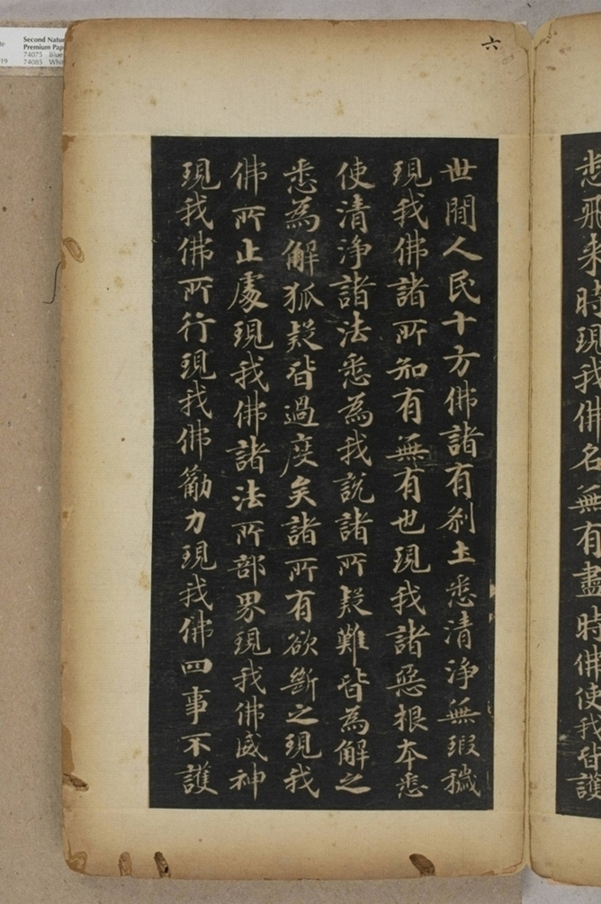 悉飛来時現我佛名無有盡時佛使我皆護
六
世間人民十方佛諸有刹土悉清淨無瑕穢
現我佛諸所知有無有也現我諸惡根本悉
使清淨諸法悉為我説諸所疑難皆為解之
悉為解狐疑皆過度矣諸所有欲斷之現我
佛所止處現我佛諸法所部界現我佛威神
現我佛所行現我佛勸力現我佛四事不護
Second Natu
Premium Pap
74075 Blue
74085 Whit
te
19